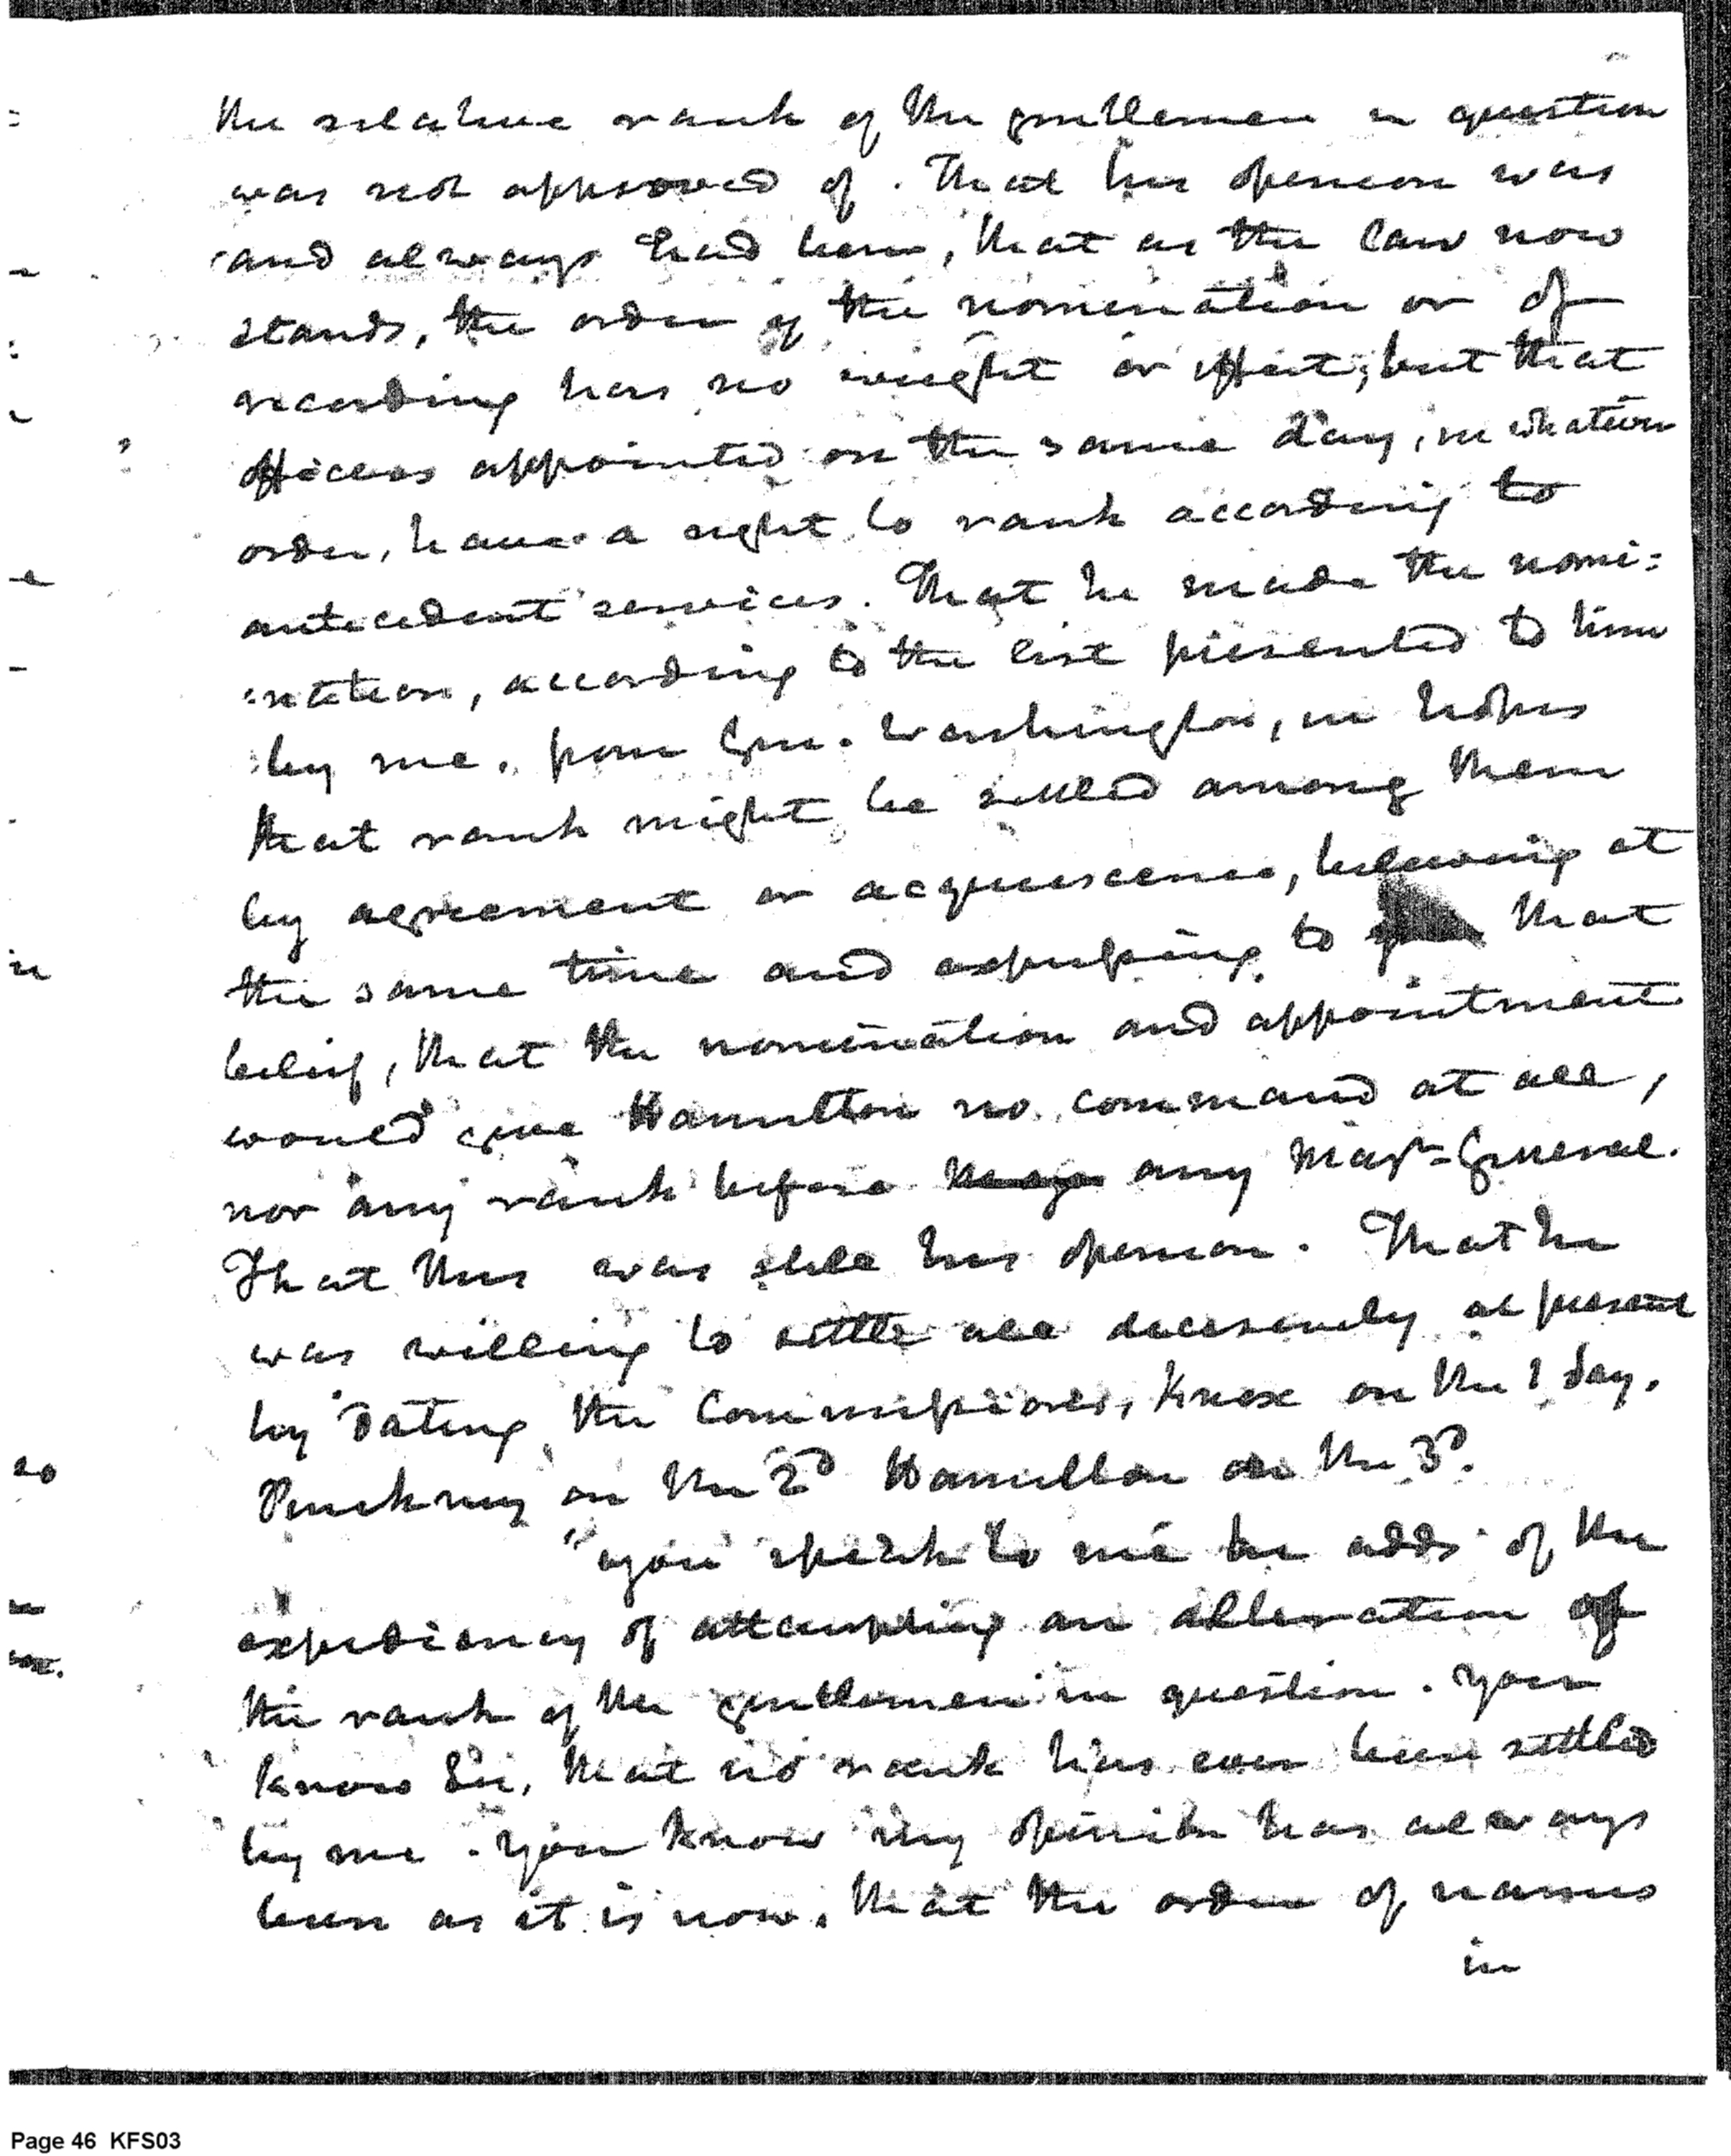 the relative rank of the gentlemen in question
was not approved of. That his opinion was
and always had been, that as the law now
stands, the order of the nomination or of
recording has no weight or effect; but that
officers appointed on the same day, in whatever
order, have a right to rank according to
antecedent services. That he made the nomi=
=nation, according to the list presented to him
by me, from Gen. Washington, in hopes
that rank might be settled among them
by agreement or acquiescence, believing at
the same time and expressing to that
belief, that the nomination and appointment
would give Hamilton no command at all,
nor any rank before any Majr-General.
That this was still his opinion. That he
was willing to settle all decisively at present
by dating the Commissions, Knox on the 1 day,
Pinckney on the 2d Hamilton on the 3d.
"you speak to me he adds of the
expediency of attempting an alteration of
the rank of the gentlemen in question. You
know Sir, that no rank has ever been settled
by me. You know my opinion has always
been as it is now, that the order of names
in
so
Page 46 KFS03